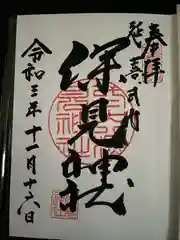 奉拝
延喜式内
保見神社
令和三年十一月十六日